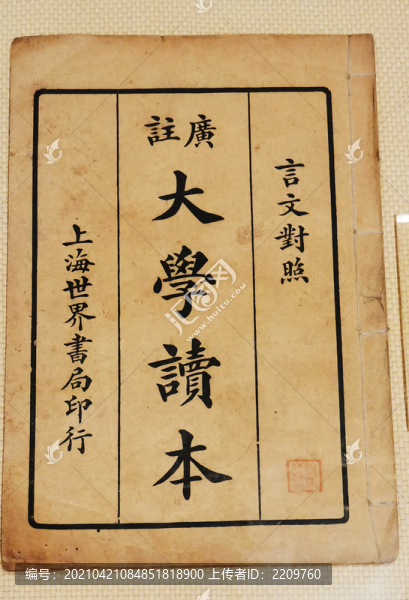 言文對照
廣註
大學讀本
上海世界書局印行
编号：20210421084851818900 上传者ID：2209760